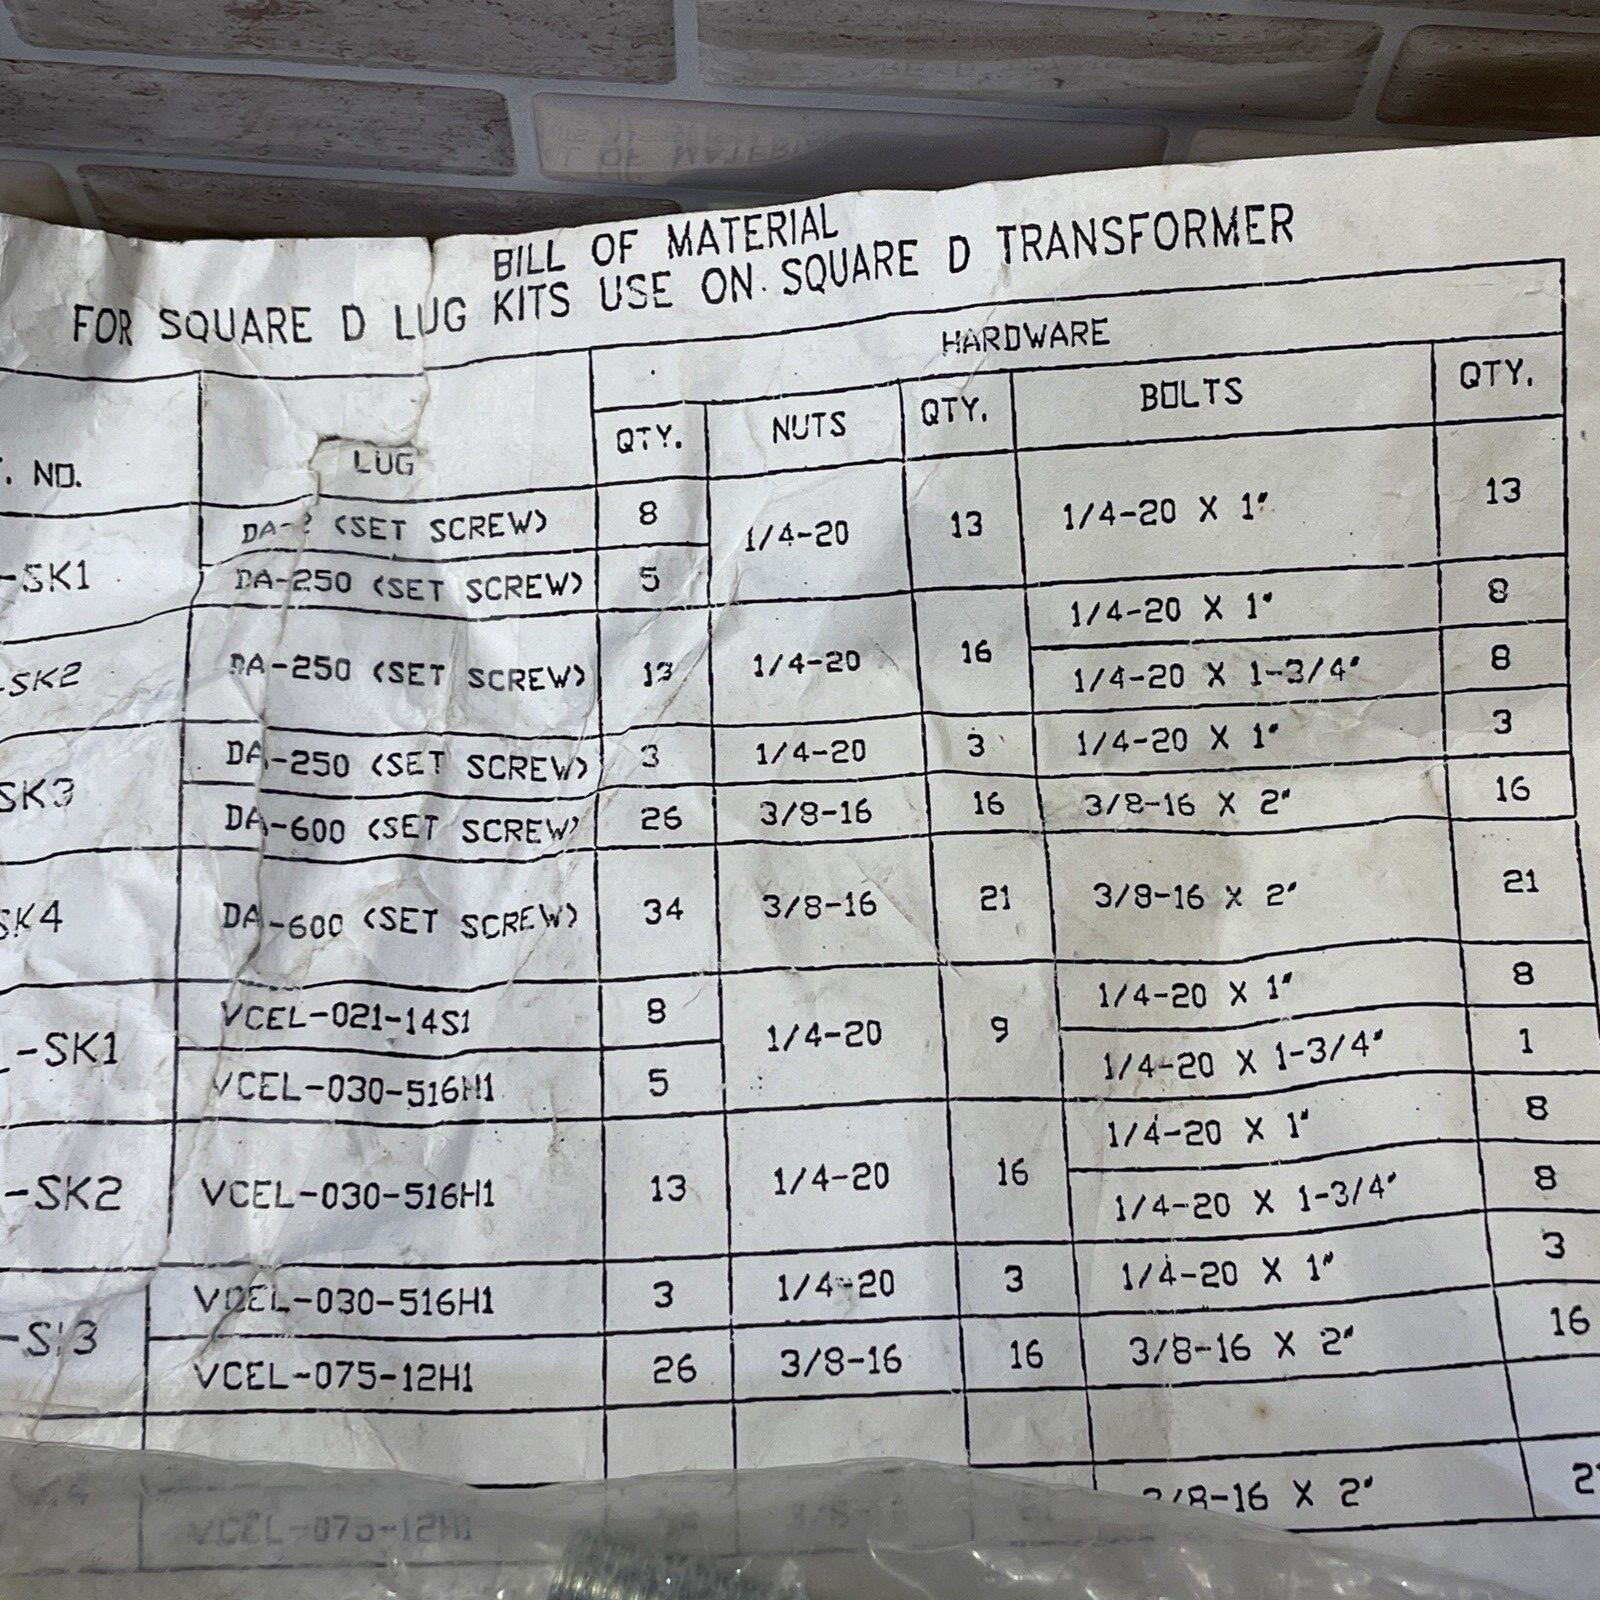 BILL OF MATERIAL
FOR SQUARE D LUG KITS USE ON SQUARE D TRANSFORMER
HARDWARE
. NO. LUG QTY. NUTS QTY. BOLTS QTY.
-SK1 (SET SCREW) 8 1/4-20 13 1/4-20 X 1" 13
DA-250 (SET SCREW) 5
-SK2 DA-250 (SET SCREW) 13 1/4-20 16 1/4-20 X 1" 8
1/4-20 X 1-3/4" 8
SK3 DA-250 (SET SCREW) 3 1/4-20 3 1/4-20 X 1" 3
DA-600 (SET SCREW) 26 3/8-16 16 3/8-16 X 2" 16
SK4 DA-600 (SET SCREW) 34 3/8-16 21 3/8-16 X 2" 21
-SK1 VCEL-021-14S1 8 1/4-20 9 1/4-20 X 1" 8
VCEL-030-516H1 5 1/4-20 X 1-3/4" 1
-SK2 VCEL-030-516H1 13 1/4-20 16 1/4-20 X 1" 8
1/4-20 X 1-3/4" 8
VCEL-030-516H1 3 1/4-20 3 1/4-20 X 1" 3
VCEL-075-12H1 26 3/8-16 16 3/8-16 X 2" 16
VCEL-075-12H1 3/8-16 X 2"